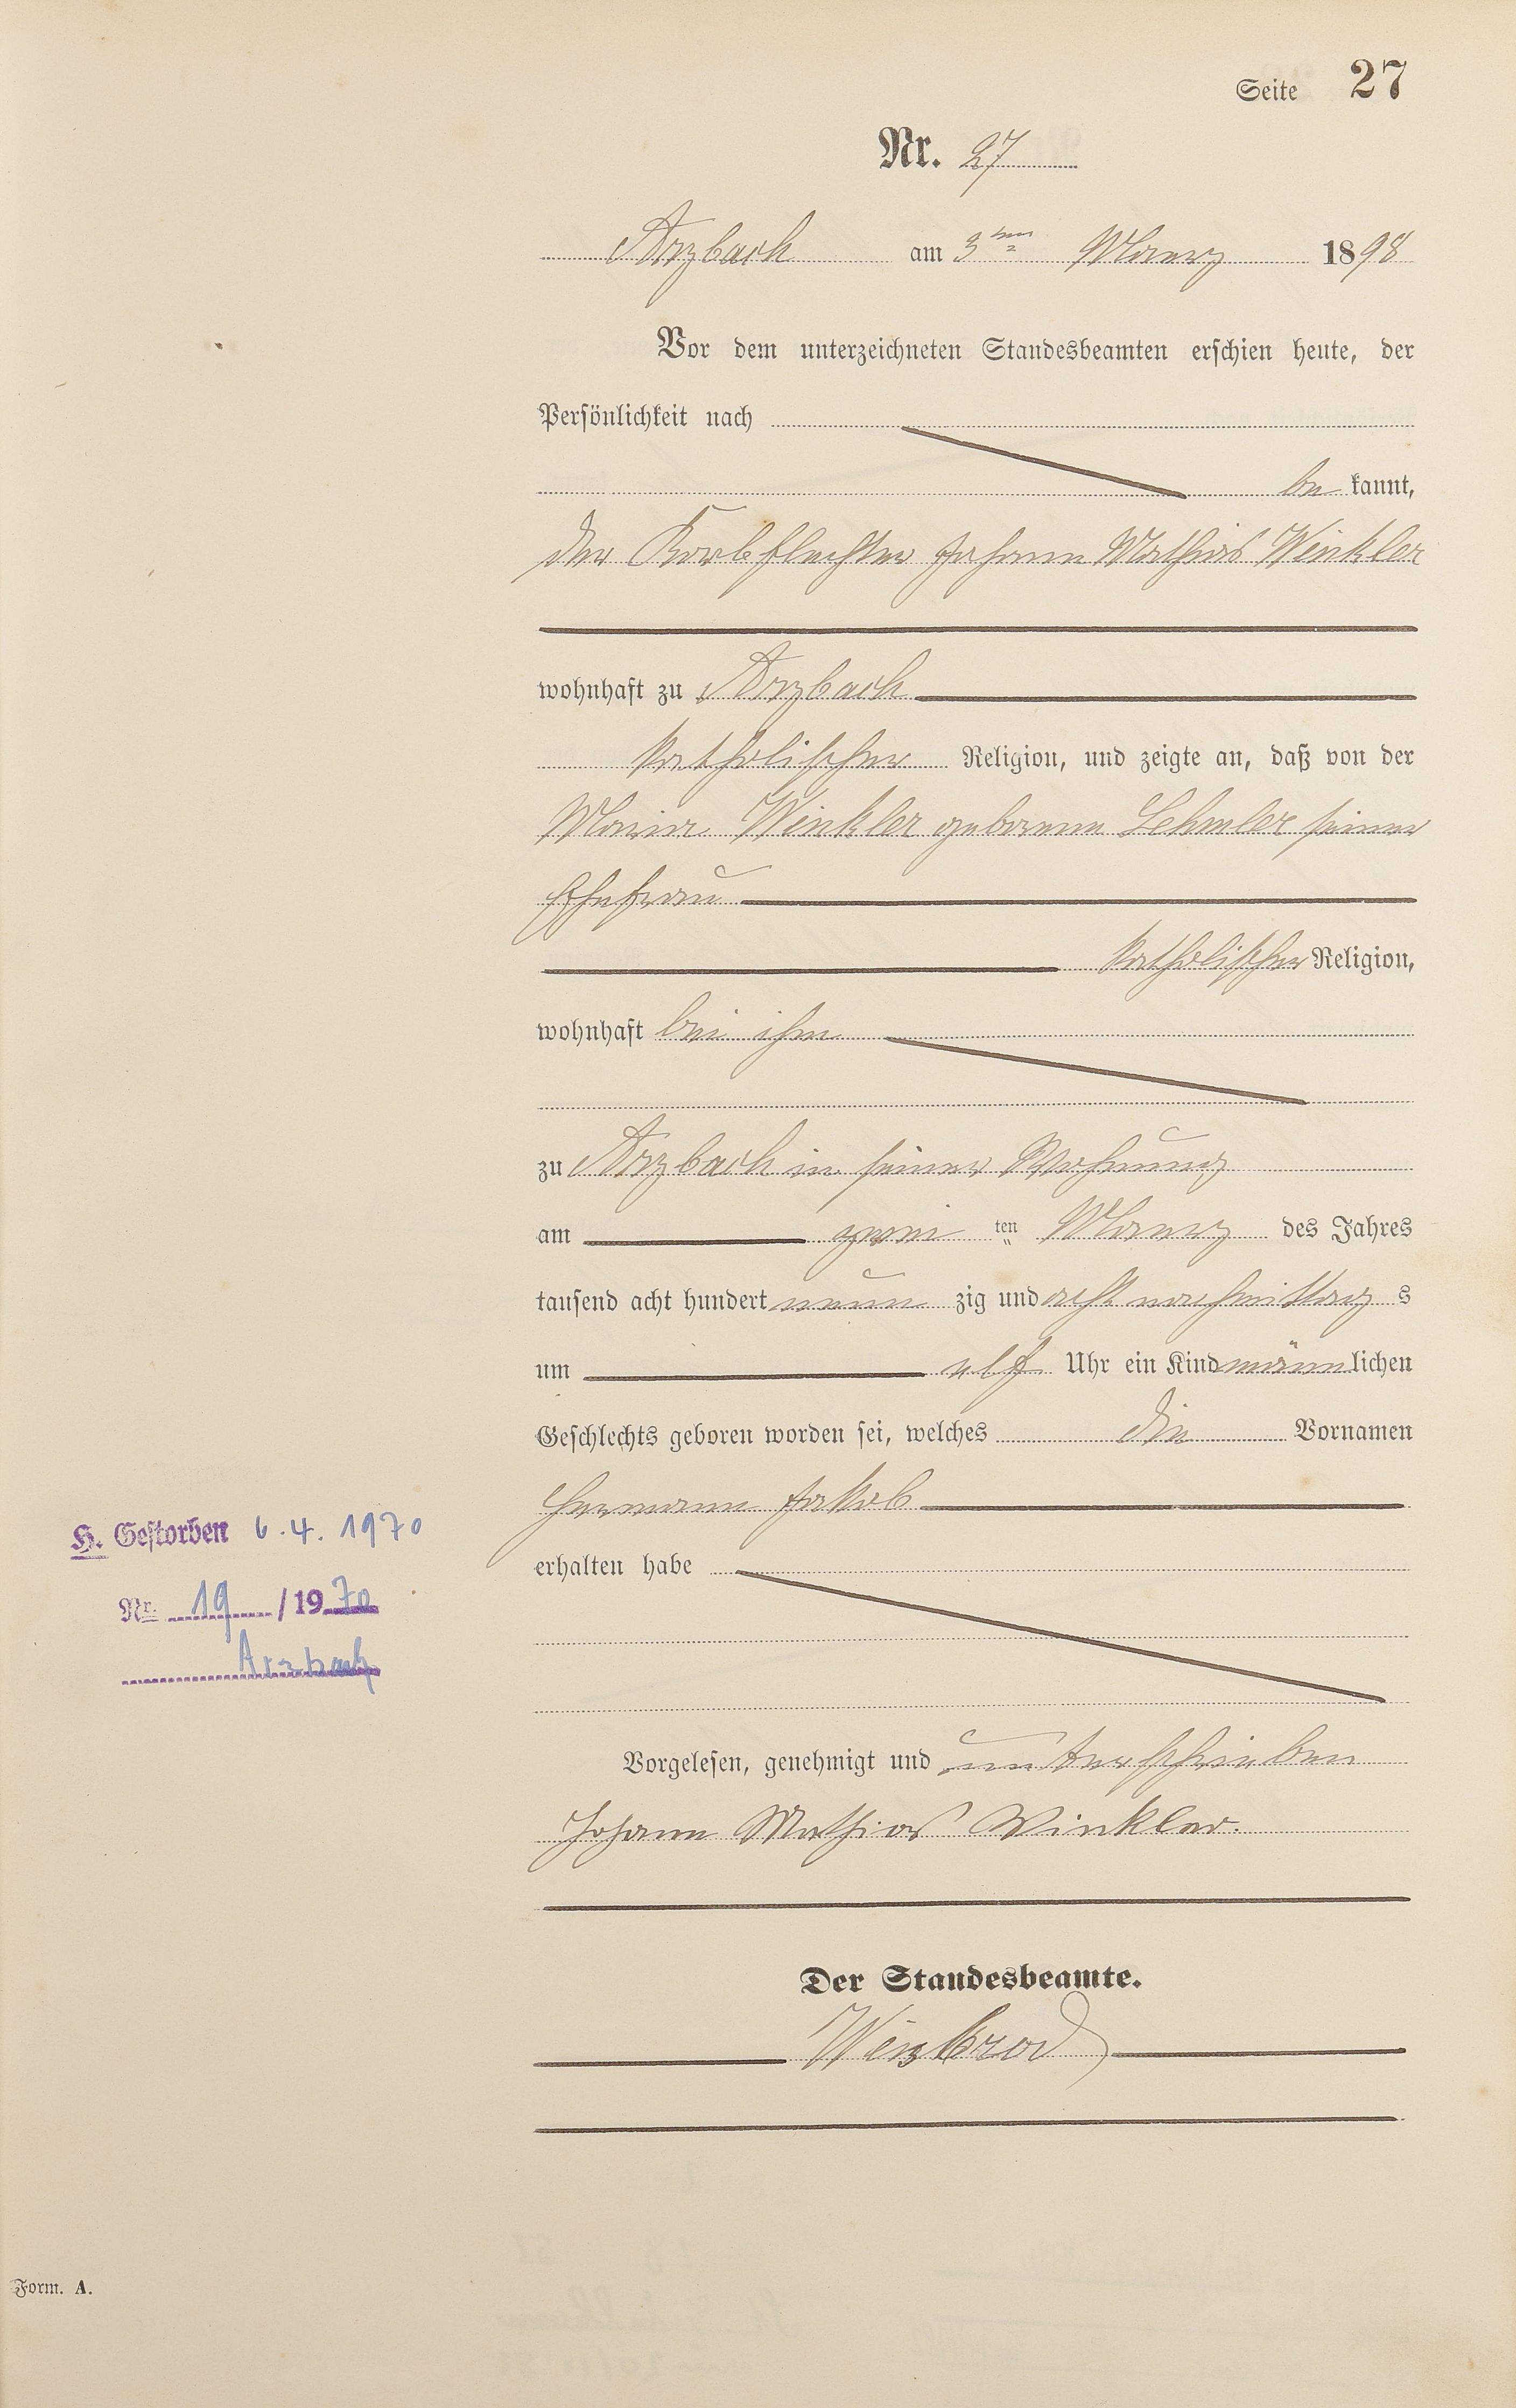 Seite 27
Nr. 27
Arzbach am 3ten März 1898
Vor dem unterzeichneten Standesbeamten erschien heute, der
Persönlichkeit nach
be kannt,
der Korbflechter Johann Mathias Winkler
wohnhaft zu Arzbach
katholischer Religion, und zeigte an, daß von der
Maria Winkler geborene Lehmler seiner
Ehefrau
katholischer Religion,
wohnhaft bei ihm
zu Arzbach in seiner Wohnung
am zwei ten März des Jahres
tausend acht hundert neun zig und acht nachmittag s
um elf Uhr ein Kind männlichen
Geschlechts geboren worden sei, welches die Vornamen
Hermann Jakob
H. Gestorben 6.4.1970
erhalten habe
Nr. 19 / 1970
Arzbach
Vorgelesen, genehmigt und unterschrieben
Johann Mathias Winkler.
Der Standesbeamte.
Weisbrod
Form. A.